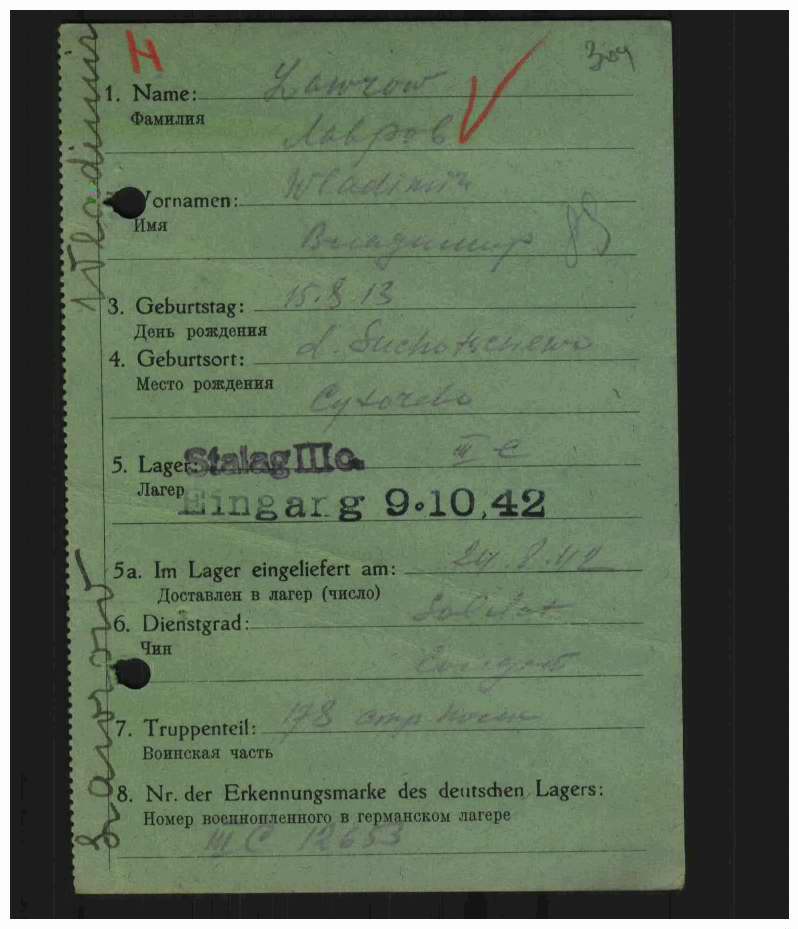 H
304
1. Name: Lawrow
Фамилия
Лавров
Vornamen: Wladimir
Имя
Владимир
3. Geburtstag: 15.8 13
День рождения
4. Geburtsort: d.
Место рождения
5. Lager: III C
Stalag III c.
Лагер
Eingang 9.10.42
5a. Im Lager eingeliefert am: 24.8.42
Доставлен в лагер (число)
6. Dienstgrad: Soldat
Чин
7. Truppenteil: 178 стр
Воинская часть
8. Nr. der Erkennungsmarke des deutschen Lagers:
Номер военнопленного в германском лагере
III C 12653
Lawrow Wladimir